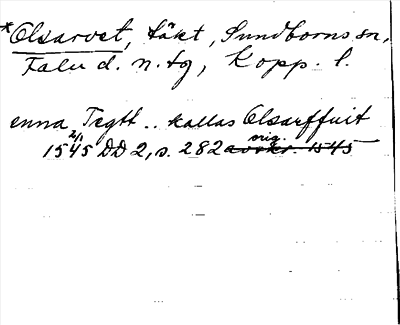 *Olsarvet, täkt, Sundborns sn,
Falu d. n. tg, Kopp. l.
enna Tegth .. kallas Olsarffuit
1545 2/1 DD 2, s. 282 orig. avskr. 1545